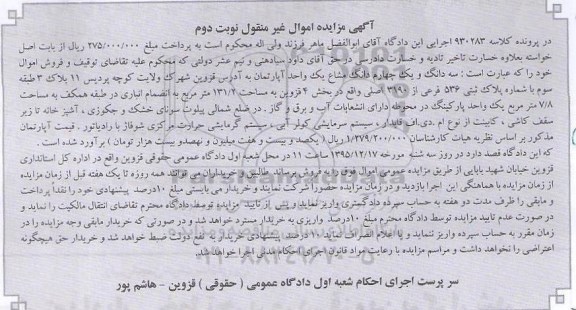 آگهی مزایده اموال غیر منقول نوبت دوم
در پرونده کلاسه ۹۳۰۲۸۳ اجرایی این دادگاه آقای ابوالفضل ماهر فرزند ولی اله محکوم است به پرداخت مبلغ ۲۷۵/۰۰۰/۰۰۰ ریال از بابت اصل
خواسته بعلاوه خسارت تاخیر تادیه و خسارت دادرسی در حق آقای داود سیادهنی و نیم عشر دولتی که محکوم علیه تقاضای توقیف و فروش اموال
خود را که عبارت است : سه دانگ و یک چهارم دانگ مشاع یک واحد آپارتمان به آدرس قزوین شهرک ولایت کوچه پردیس ۱۱ پلاک ۳ طبقه
سوم با شماره پلاک ثبتی ۵۳۶ فرعی از ۳۱۹۰ اصلی واقع در بخش ۴ قزوین به مساحت ۱۳۱/۲ متر مربع به انضمام انباری در طبقه همکف به مساحت
۷/۸ متر مربع یک واحد پارکینگ در محوطه دارای انشعابات آب و برق و گاز . در ضلع شمالی پیلوت سرمای خشک و جکوزی ، آشپز خانه تا زیر
سقف کاشی ، کابینت از نوع ام .دی.اف فایدار ، سیستم سرمایشی کولر آبی ، سیستم گرمایشی حرارت مرکزی شوفاژ با رادیاتور . قیمت آپارتمان
مذکور بر اساس نظریه هیات کارشناسان ۱/۲۷۹/۲۰۰/۰۰۰ ریال ( یکصد و بیست و هفت میلیون و نهصدو بیست هزار تومان ) برآورد شده است .
که این دادگاه قصد دارد در روز سه شنبه مورخه ۱۳۹۵/۱۲/۱۷ ساعت ۱۱ در محل شعبه اول دادگاه عمومی حقوقی قزوین واقع در اداره کل استانداری
قزوین خیابان شهید بابایی از طریق مزایده عمومی اموال فوق را به فروش برساند طالبین و خریداران می توانند همه روزه تا یک هفته قبل از زمان مزایده
از زمان مزایده با هماهنگی این اجرا بازدید و در زمان مزایده حضوراً شرکت نمایند و خریدار می بایستی مبلغ ۱۰درصد پیشنهادی خود را نقداً پرداخت
و مابقی را ظرف مدت دو هفته به حساب سپرده دادگستری واریز نماید و پس از تایید مزایده توسط دادگاه محترم تقاضای انتقال مالکیت را نماید و
در صورت عدم تایید مزایده توسط دادگاه محترم مبلغ ۱۰درصد واریزی به خریدار مسترد خواهد شد و در صورتی که خریدار مابقی وجه مزایده را در
زمان مقرر به حساب سپرده واریز ننماید و یا اعلام انصراف نماید، ۱۰درصد پیشنهادی خریدار به نفع دولت ضبط خواهد شد و خریدار حق هیچگونه
اعتراضی را نخواهد داشت و مراسم مزایده با رعایت مواد قانون اجرای احکام مدنی اجرا خواهد شد.
سر پرست اجرای احکام شعبه اول دادگاه عمومی ( حقوقی ) قزوین - هاشم پور